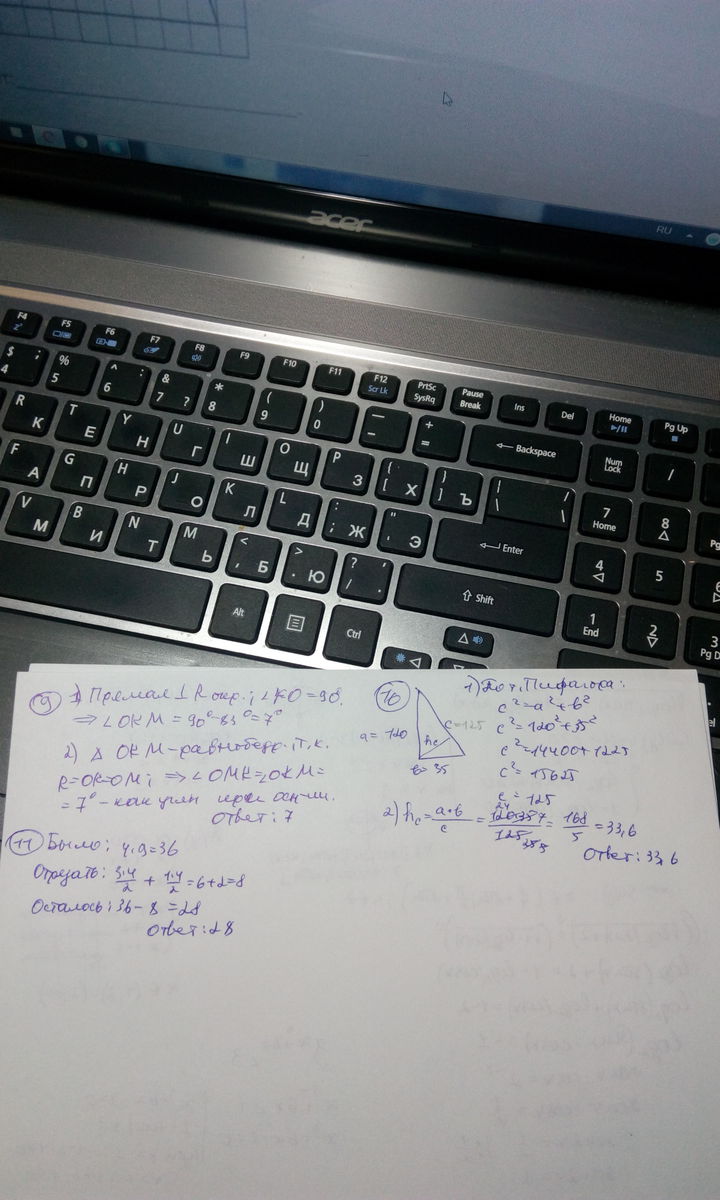 RU
acer
F4 F5 F6 F7 F8 F9 F10 F11 F12 Scr Lk PrtSc SysRq Pause Break Ins Del Home Pg Up
$ ; 4 % 5 ^ : 6 & 7 ? * 8 ( 9 ) 0 — - + = Backspace Num Lock /
R К T Е Y Н U Г I Ш O Щ P З { [ Х } ] Ъ | \ / \ 7 Home 8 Pg
F А G П H Р J О K Л L Д : ; Ж " ' Э Enter 4 5 6
V М B И N Т M Ь < , Б > . Ю ? / , . Shift 1 End 2 3 Pg D
Alt Ctrl
9 1) Прямая ⊥ R окр.; ∠KO = 90.
⇒ ∠OKM = 90° - 83° = 7°
2) Δ OKM - равнобедр. т.к.
R=OK=OM; ⇒ ∠OMK=∠OKM=
= 7° - как углы при осн-ии.
Ответ: 7
10 1) По т. Пифагора:
c² = a² + b²
c² = 120² + 35²
c² = 14400 + 1225
c² = 15625
c = 125
a = 120
c = 125
hc
b = 35
2) hc = a·b / c = 120·35 7 / 125 = 168 / 5 = 33,6
24
Ответ: 33,6
11 Было: 4·9=36
Отрезать: 3·4 / 2 + 1·4 / 2 = 6+2=8
Осталось: 36 - 8 = 28
Ответ: 28